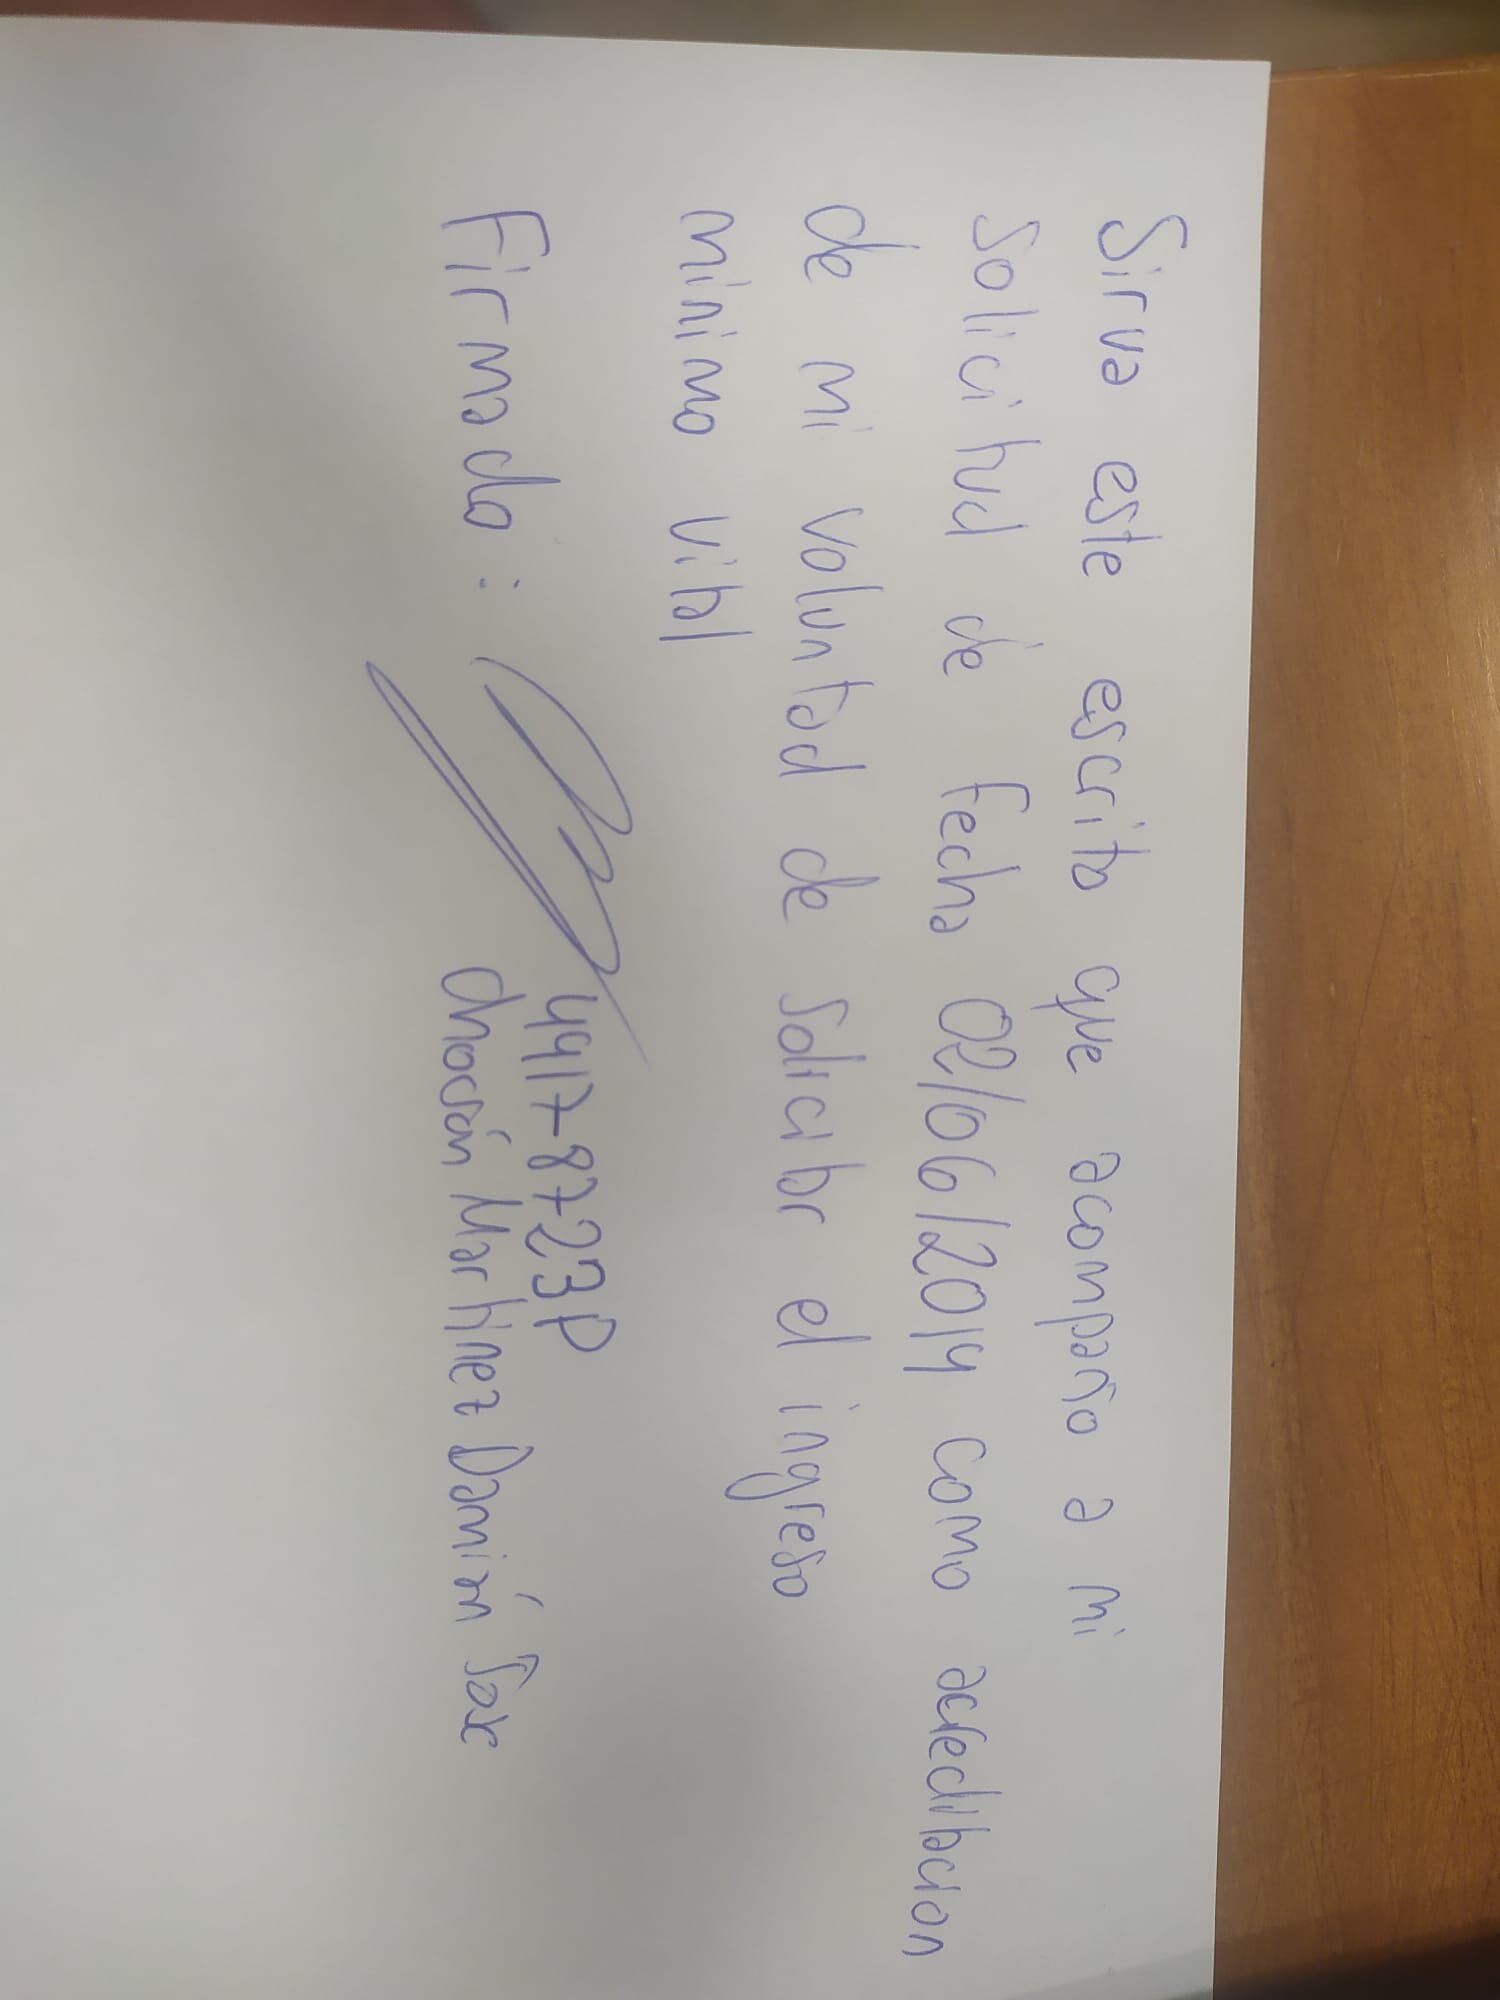 Sirva este escrito que acompaño a mi
solicitud de fecha 02/06/2014 como acreditacion
de mi voluntad de solicitar el ingreso
minimo vital
Firmado:
4917-8723P
Martinez Damián